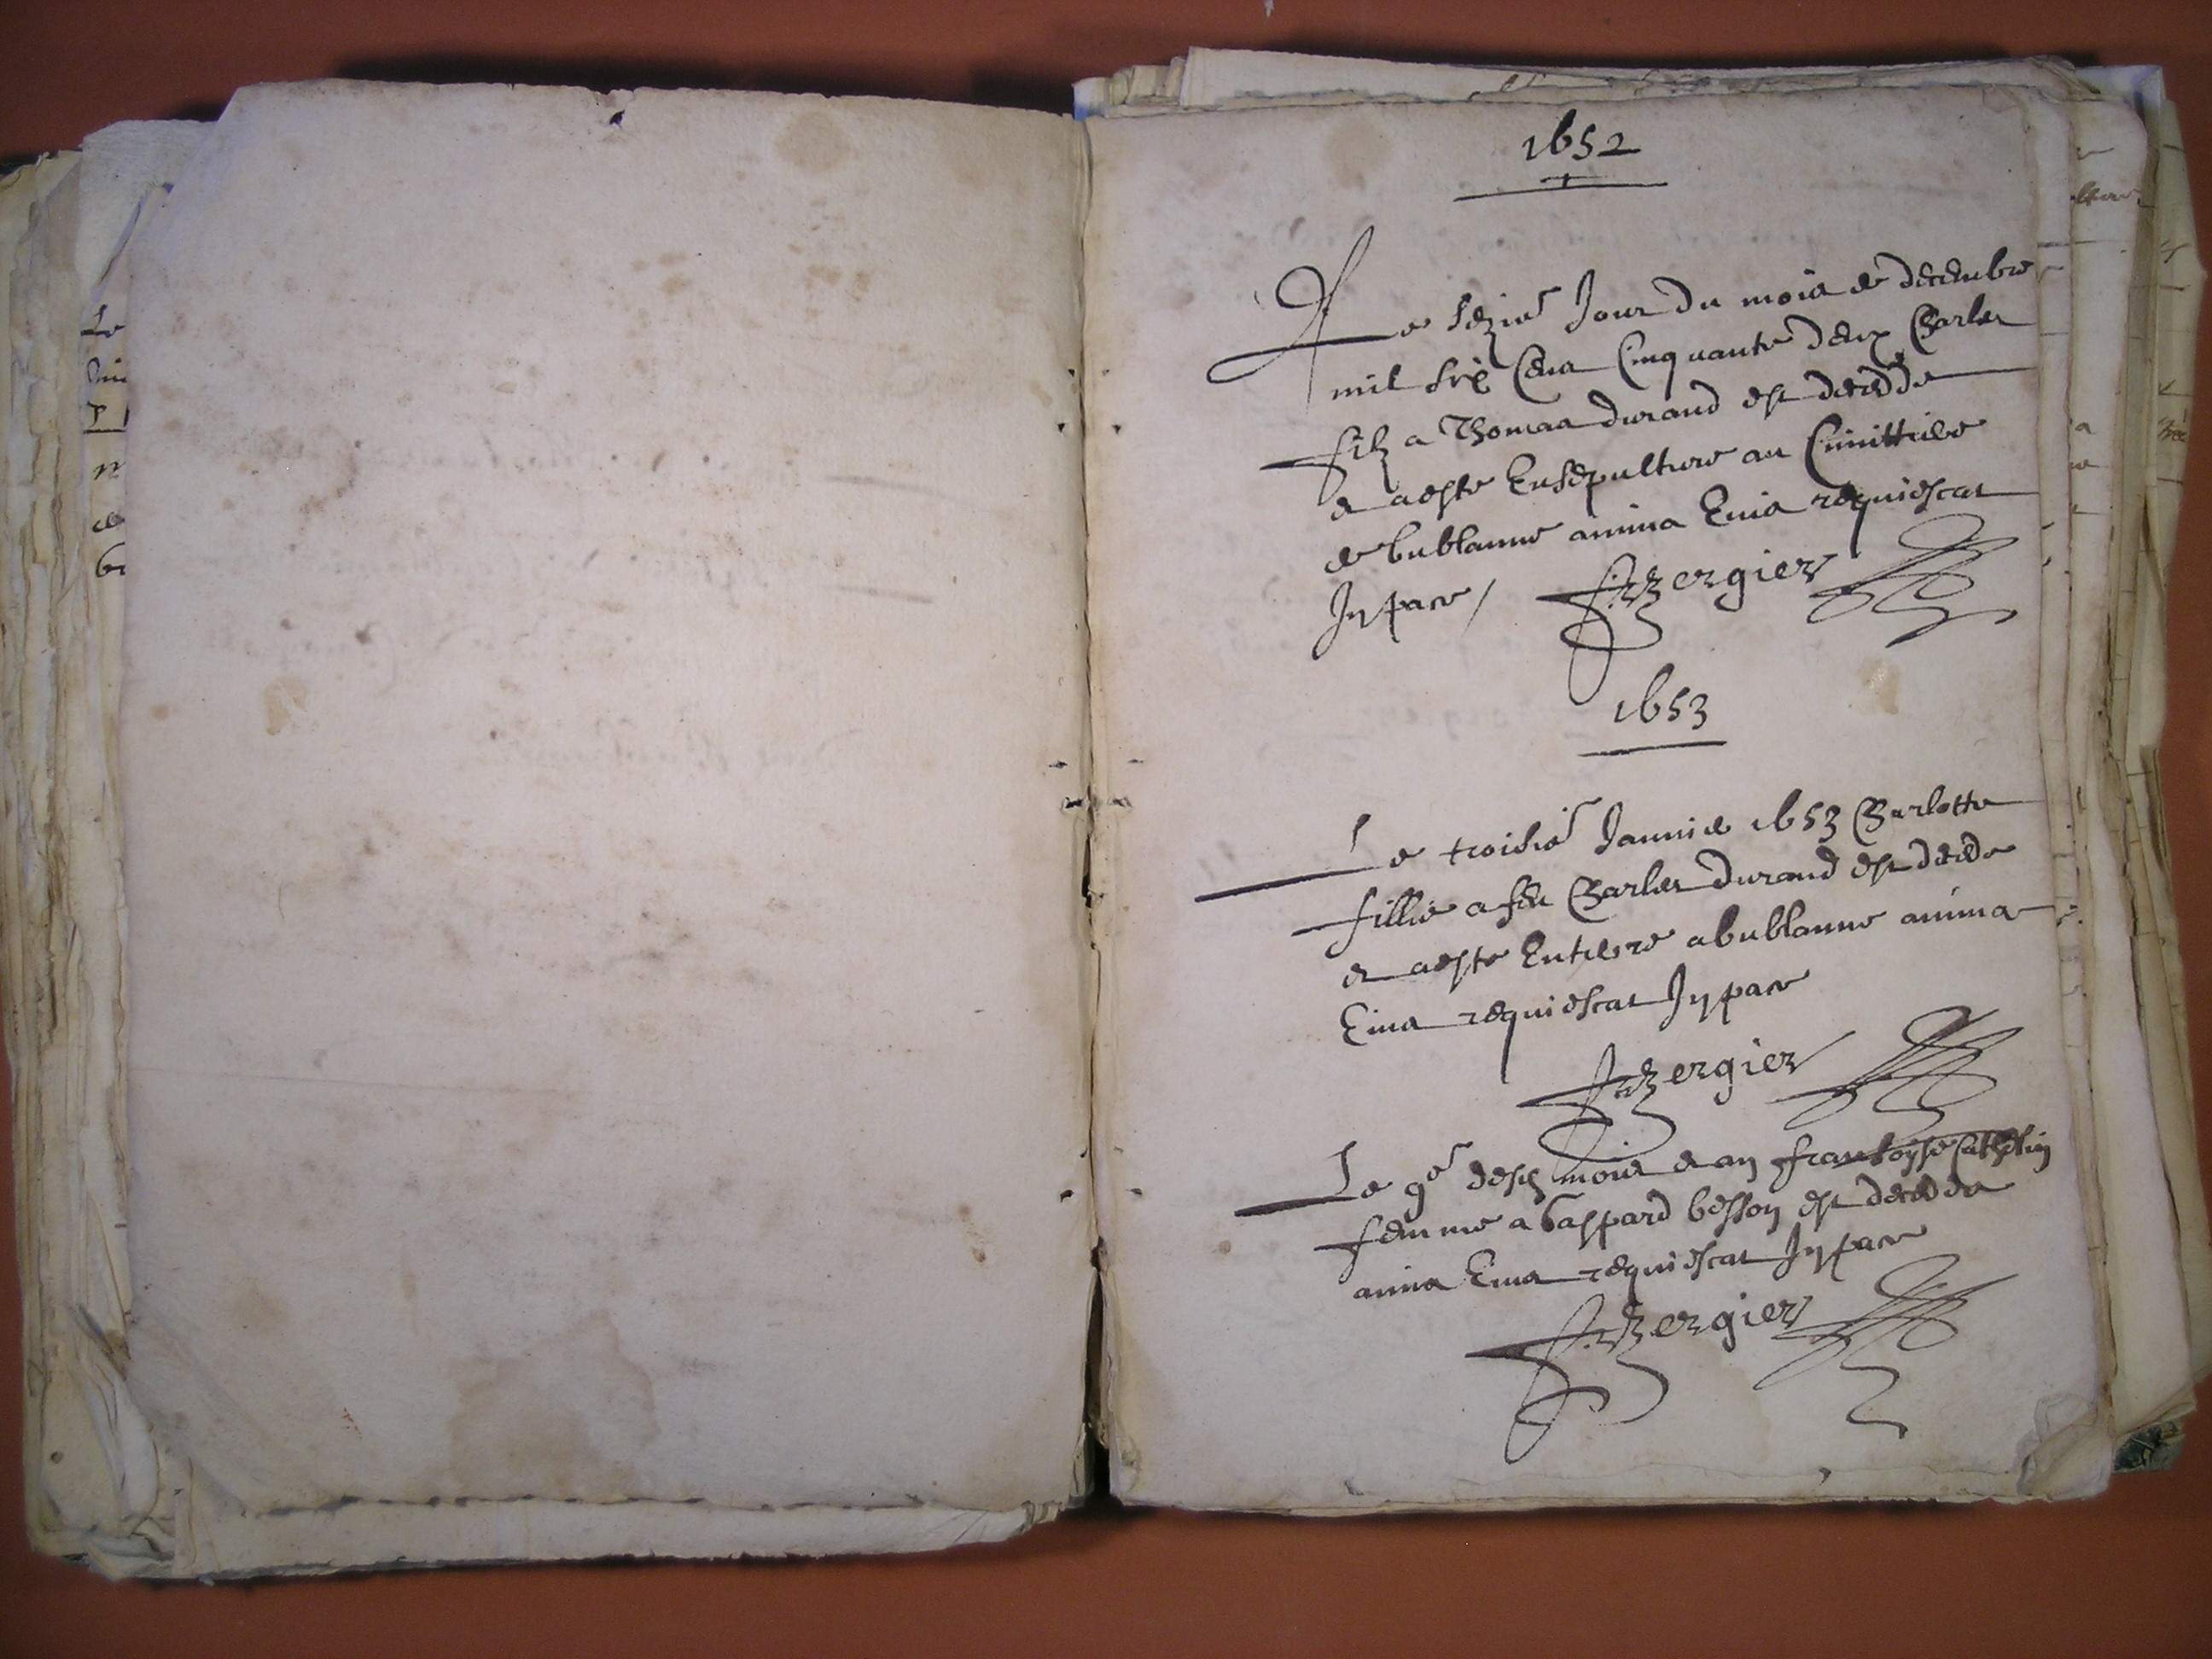 1652
Le sezie Jour du mois de decembre
mil six Cens Cinquante deux Charles
filz a Thomas durand est deceddé
& a esté Ensepulturé au Cimittiere
de bublanne anima Eius requiescat
In pace / Bergier
1653
Le troisie Janvier 1653 Charlotte
fillie a feu Charles durand est decede
& a esté Enterre a bublanne anima
Eius requiescat In pace
Bergier
Le 9e desd mois & an francoyse
femme a Gaspard besson est decedde
anima Eius requiescat In pace
Bergier